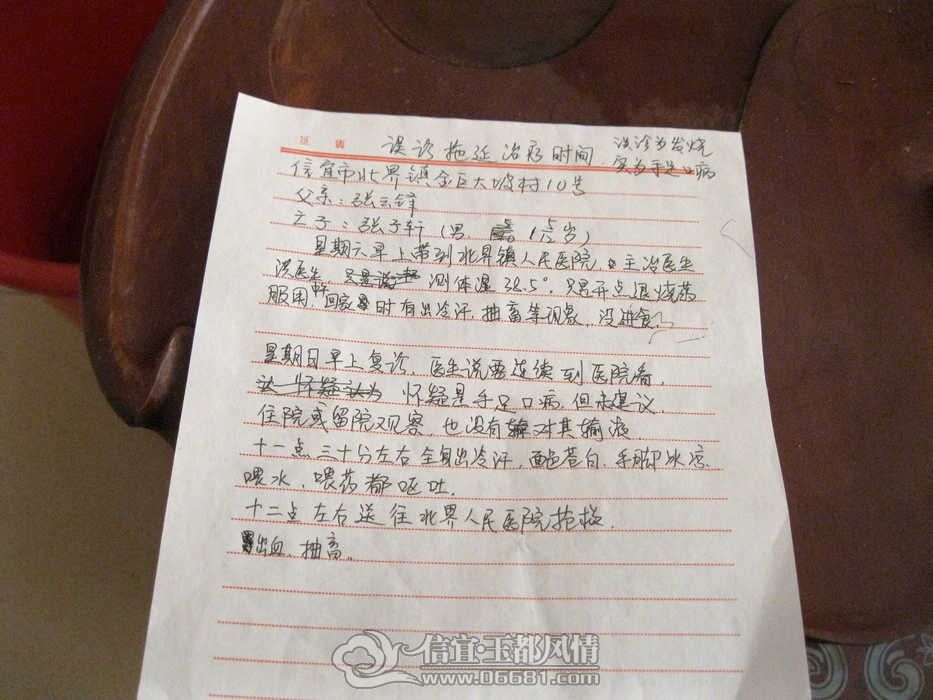 误诊拖延治疗时间,误诊为发烧
实为手足口病
信宜市北界镇金巨大坡村10号
父亲:张云锋
之子:张子轩(男 1 5/12岁)
星期六早上带到北界镇人民医院。主治医生
洪医生, 测体温38.5°只是开点退烧药
服用,回家 时有出冷汗,抽畜等现象,没进食
星期日早上复诊,医生说要连续到医院看,
怀疑是手足口病,但未建议
住院或留院观察,也没有对其输液
十一点三十分左右全身出冷汗,面色苍白,手脚冰凉
喂水,喂药都呕吐.
十二点左右送往北界人民医院抢救.
出血,抽畜。
信宜·玉都风情
www.06681.com